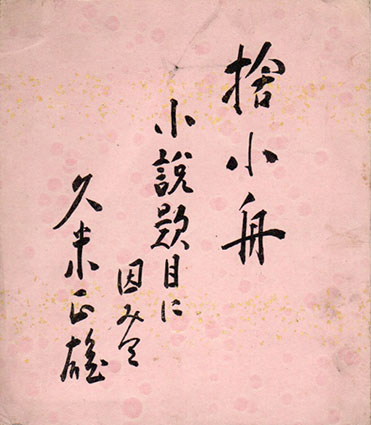 捨小舟
小説題目に
因みて
久米正雄